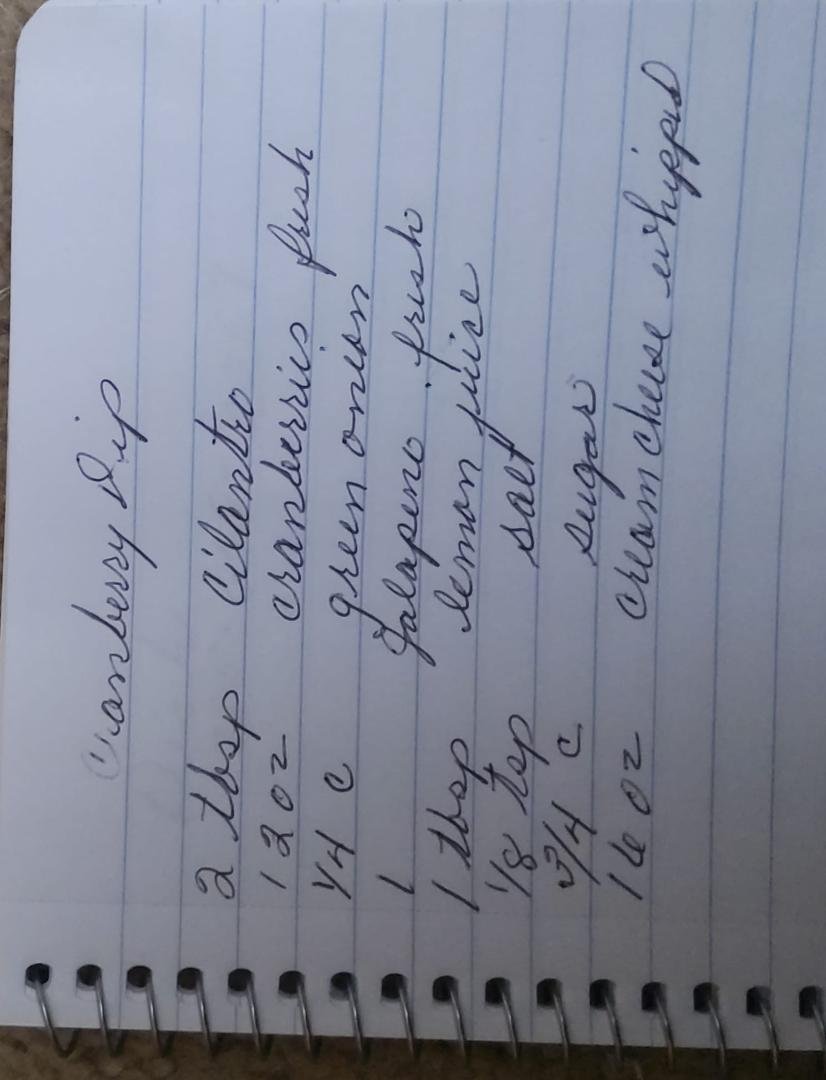 Cranberry Dip
2 tbsp cilantro
12 oz cranberries fresh
1/4 c green onion
1 Jalapeno fresh
1 tbsp lemon juice
1/8 tsp salt
3/4 c sugar
16 oz cream cheese whipped